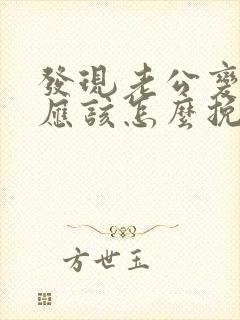 發現老公變
應該怎麼挽
方世玉